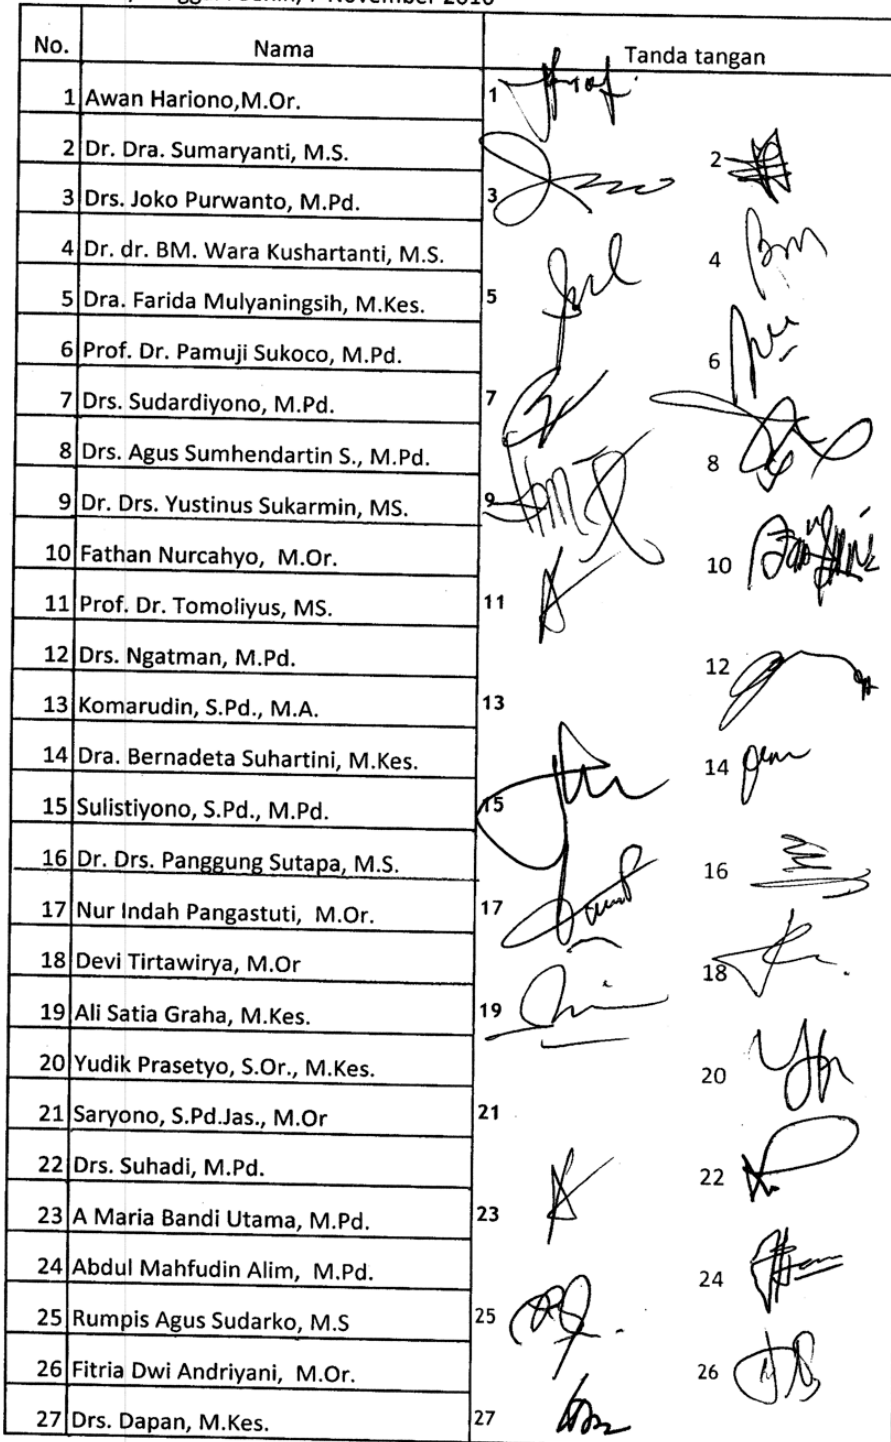 November 2016
No. Nama Tanda tangan
1 Awan Hariono,M.Or. 1
2 Dr. Dra. Sumaryanti, M.S. 2
3 Drs. Joko Purwanto, M.Pd. 3
4 Dr. dr. BM. Wara Kushartanti, M.S. 4
5 Dra. Farida Mulyaningsih, M.Kes. 5
6 Prof. Dr. Pamuji Sukoco, M.Pd. 6
7 Drs. Sudardiyono, M.Pd. 7
8 Drs. Agus Sumhendartin S., M.Pd. 8
9 Dr. Drs. Yustinus Sukarmin, MS. 9
10 Fathan Nurcahyo, M.Or. 10
11 Prof. Dr. Tomoliyus, MS. 11
12 Drs. Ngatman, M.Pd. 12
13 Komarudin, S.Pd., M.A. 13
14 Dra. Bernadeta Suhartini, M.Kes. 14
15 Sulistiyono, S.Pd., M.Pd. 15
16 Dr. Drs. Panggung Sutapa, M.S. 16
17 Nur Indah Pangastuti, M.Or. 17
18 Devi Tirtawirya, M.Or 18
19 Ali Satia Graha, M.Kes. 19
20 Yudik Prasetyo, S.Or., M.Kes. 20
21 Saryono, S.Pd.Jas., M.Or 21
22 Drs. Suhadi, M.Pd. 22
23 A Maria Bandi Utama, M.Pd. 23
24 Abdul Mahfudin Alim, M.Pd. 24
25 Rumpis Agus Sudarko, M.S 25
26 Fitria Dwi Andriyani, M.Or. 26
27 Drs. Dapan, M.Kes. 27